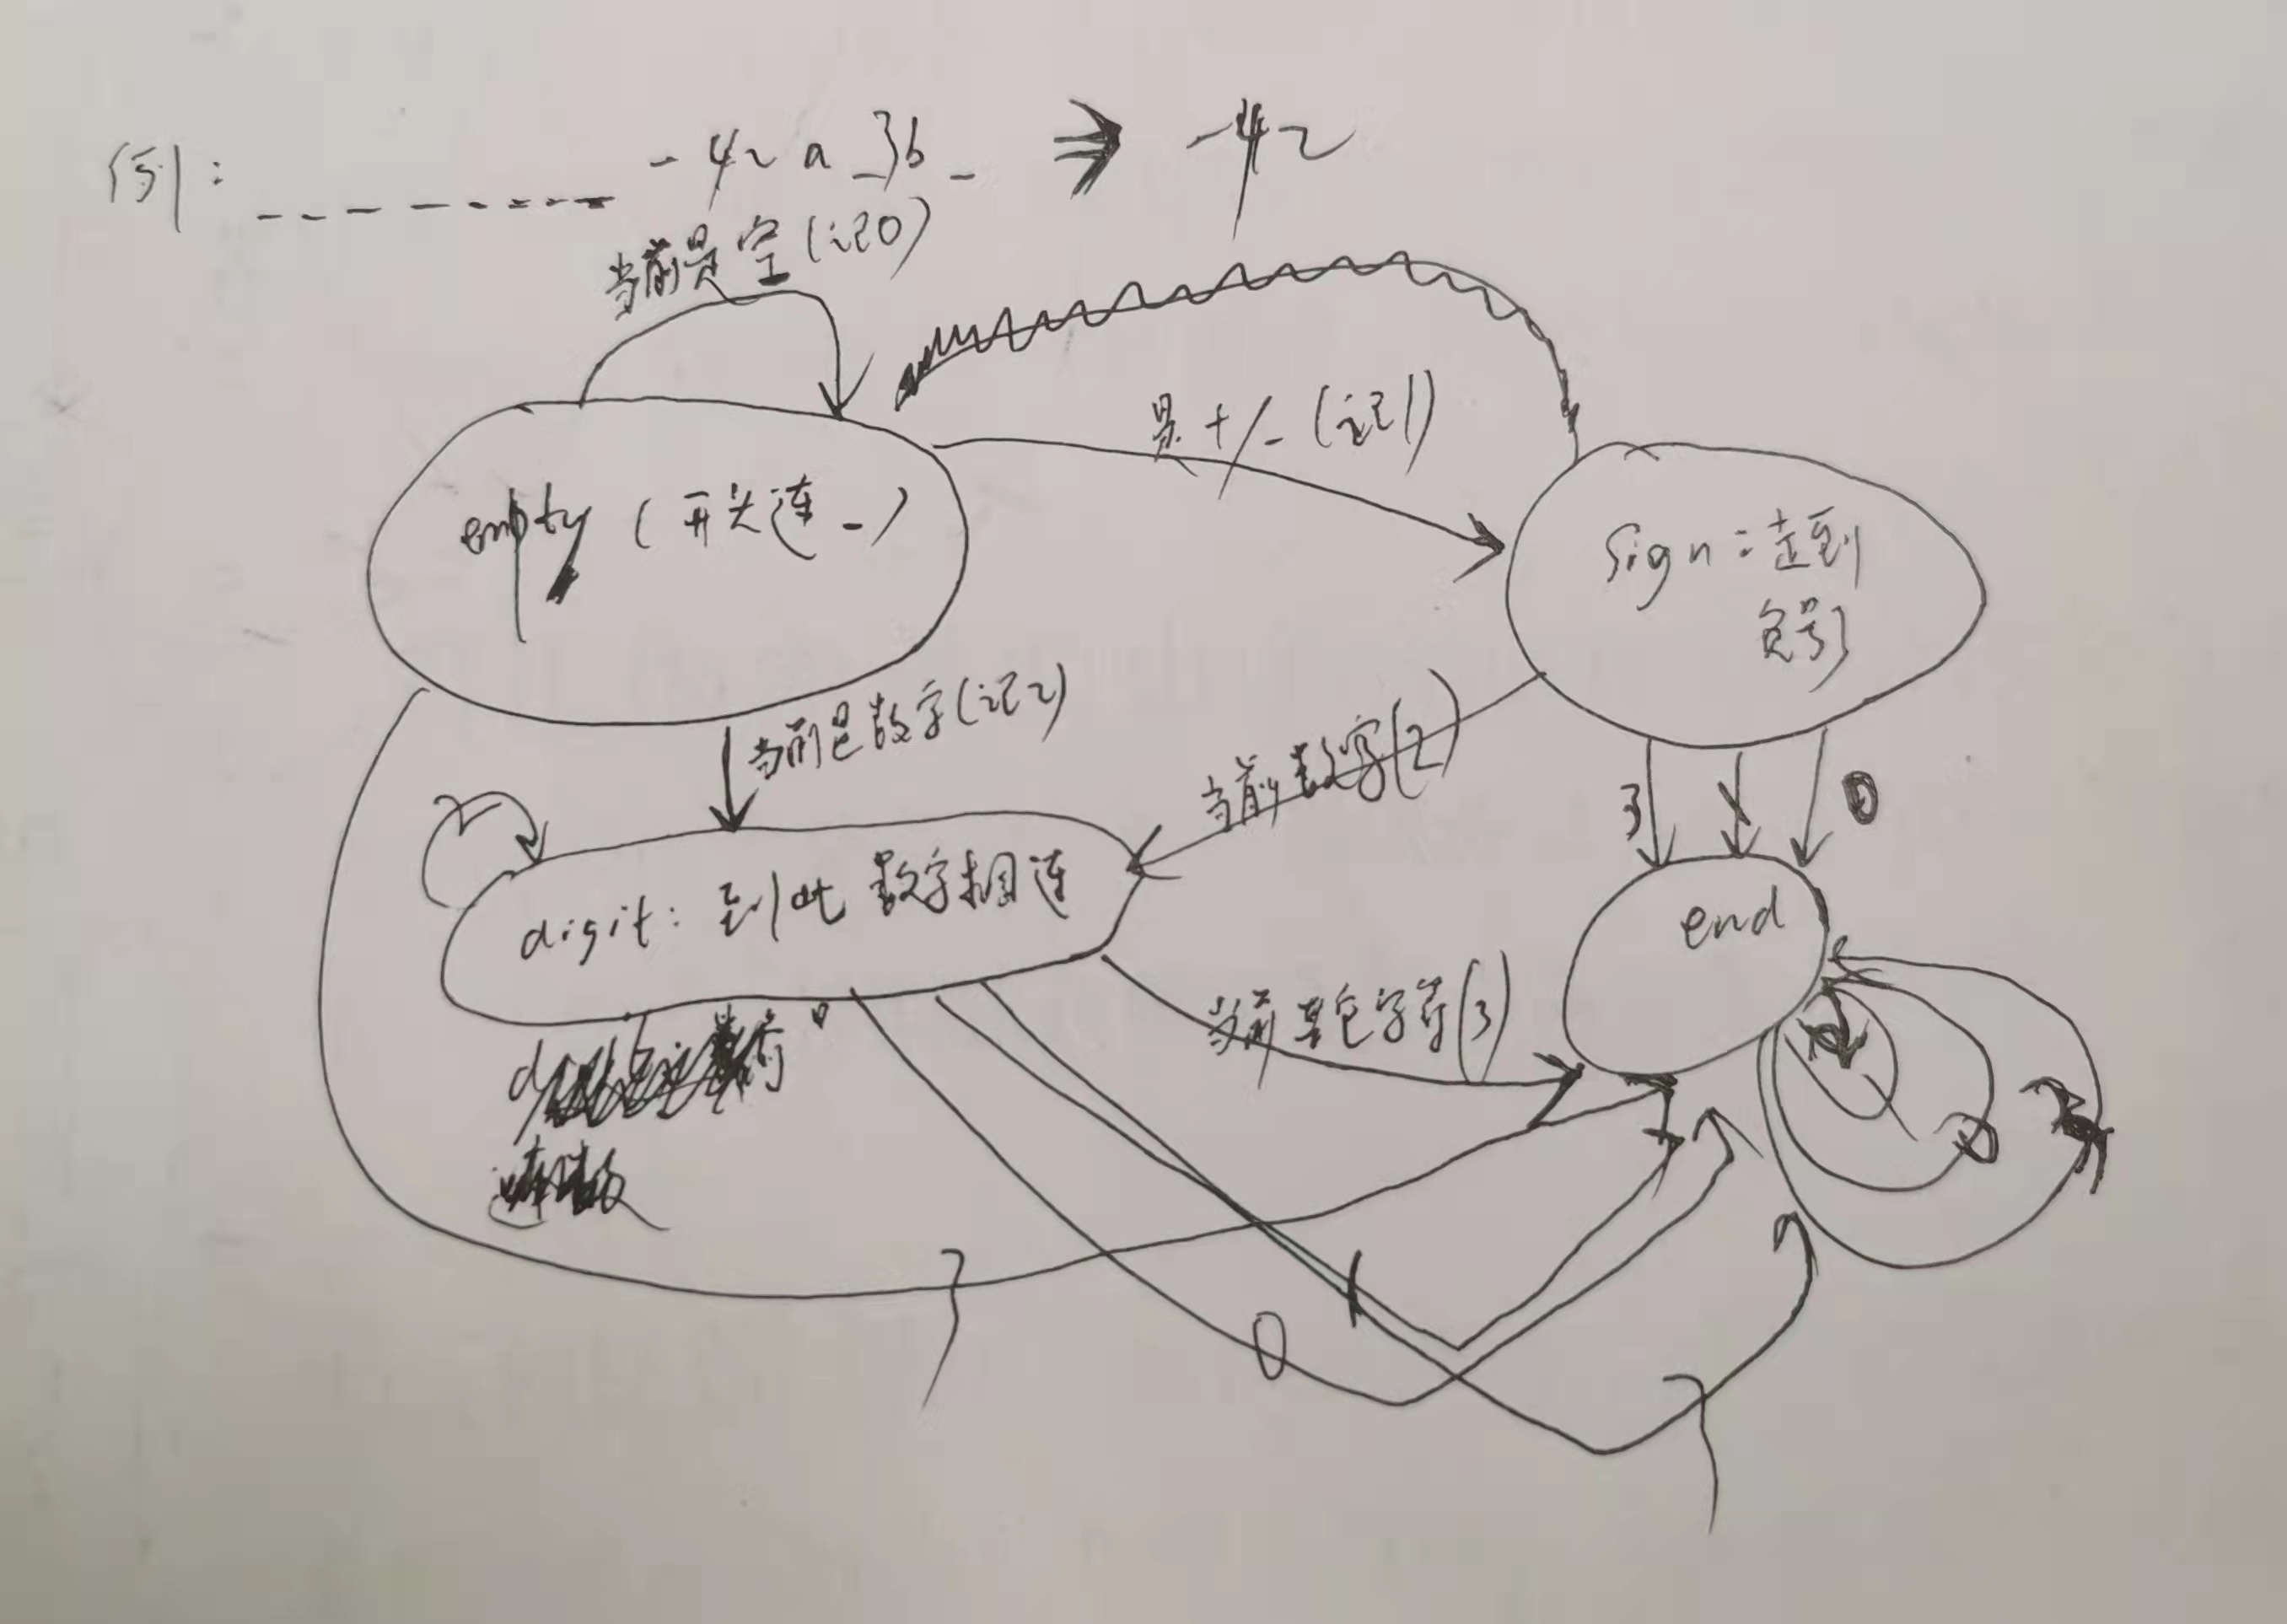 例: _ _ _ _ _ _ _ _ -42a_3b_ ⇒ -42
当前是空(记0)
是+/-(记1)
empty (开头连_)
sign:走到
负号
当前是数字(记2)
当前数字(2)
3
1
0
2
digit: 到此 数字相连
end
当前其它字符(3)
0
3
1
0
3